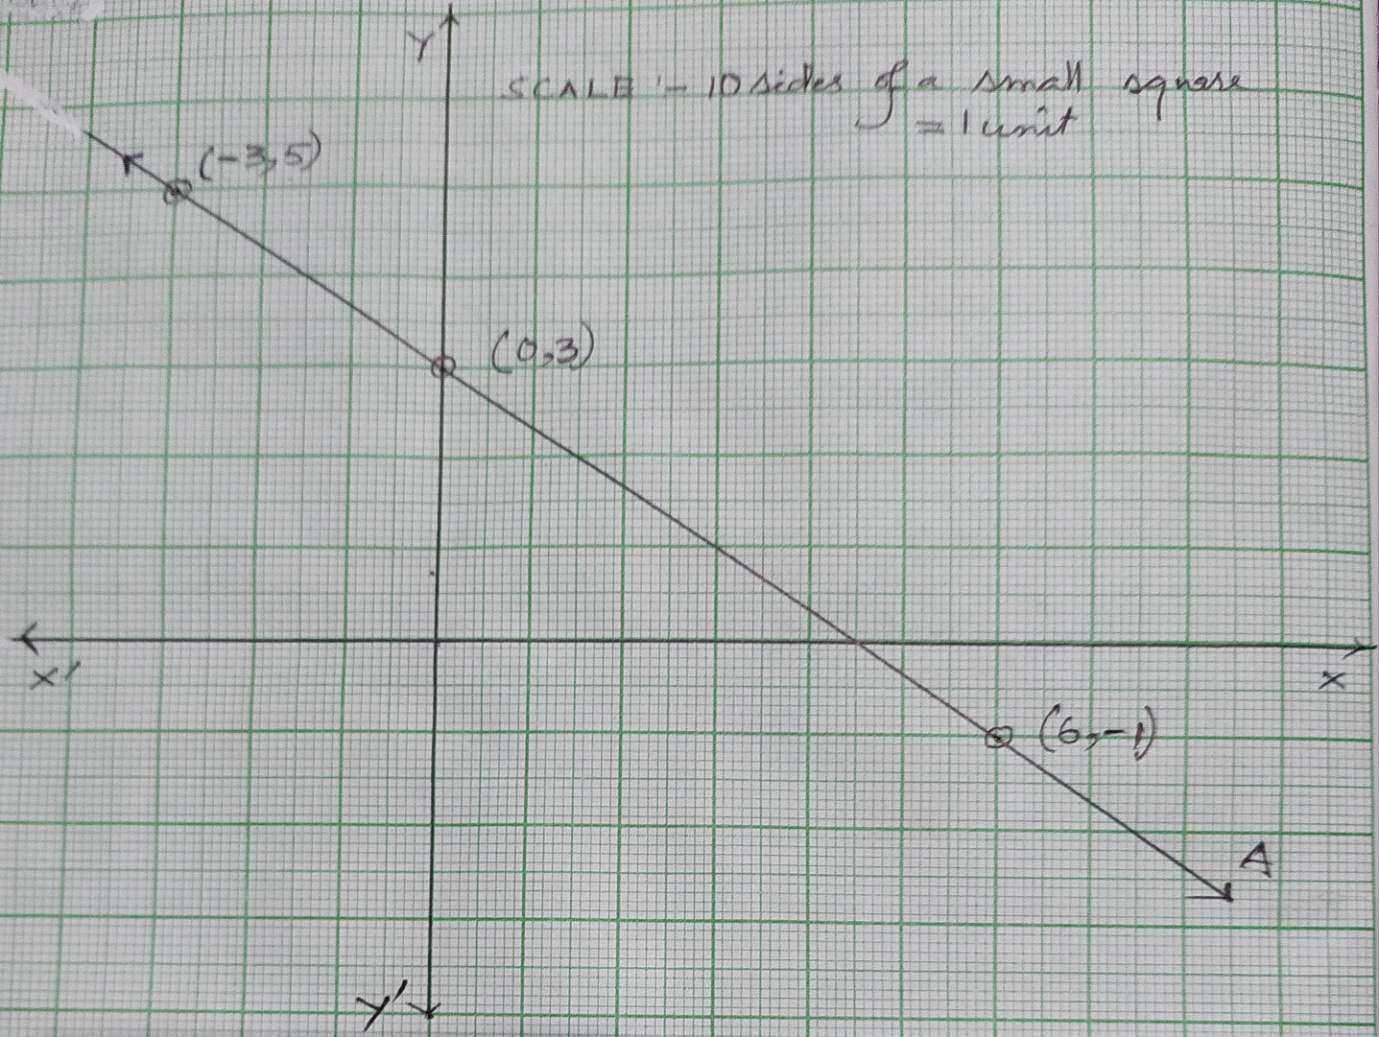 Y
SCALE :- 10 sides of a small square
= 1 unit
(-3,5)
(0,3)
X'
X
(6,-1)
A
Y'